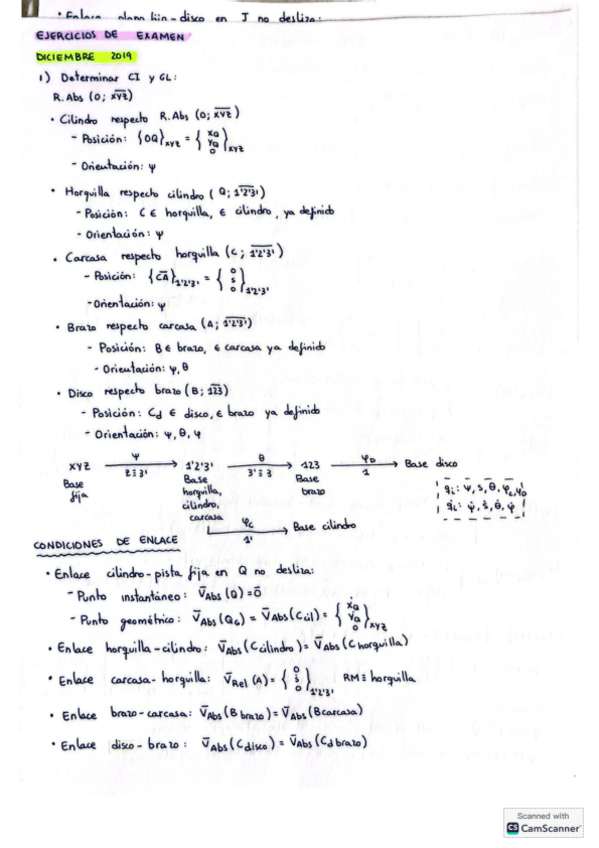 • Enlace plano hor-disco en J no desliza:
EJERCICIOS DE EXAMEN
DICIEMBRE 2019
1) Determinar CI y GL:
R.Abs (O; XYZ)
• Cilindro respecto R.Abs (O; XYZ)
- Posición: {OQ}XYZ = {XQ YQ 0}XYZ
- Orientación: ψ
• Horquilla respecto cilindro (Q; 1'2'3')
- Posición: C ∈ horquilla, ∈ cilindro, ya definido
- Orientación: ψ
• Carcasa respecto horquilla (C; 1'2'3')
- Posición: {CA}1'2'3' = {0 s 0}1'2'3'
- Orientación: ψ
• Brazo respecto carcasa (A; 1'2'3')
- Posición: B ∈ brazo, ∈ carcasa ya definido
- Orientación: ψ, θ
• Disco respecto brazo (B; 123)
- Posición: Cd ∈ disco, ∈ brazo ya definido
- Orientación: ψ, θ, φ
XYZ ψ Z≡3' 1'2'3' θ 3'≡3 123 φD 1 Base disco
Base fija
Base horquilla, cilindro, carcasa
Base brazo
φc 1' Base cilindro
qi: ψ, s, θ, φc, φD
q̇i: ψ̇, ṡ, θ̇, φ̇
CONDICIONES DE ENLACE
• Enlace cilindro-pista fija en Q no desliza:
- Punto instantáneo: VAbs(Q) = 0
- Punto geométrico: VAbs(QG) = VAbs(Ccil) = {ẊQ ẎQ 0}XYZ
• Enlace horquilla-cilindro: VAbs(Ccilindro) = VAbs(Chorquilla)
• Enlace carcasa-horquilla: VRel(A) = {0 ṡ 0}1'2'3' RM ≡ horquilla
• Enlace brazo-carcasa: VAbs(Bbrazo) = VAbs(Bcarcasa)
• Enlace disco-brazo: VAbs(Cdisco) = VAbs(Cd brazo)
Scanned with
CS CamScanner